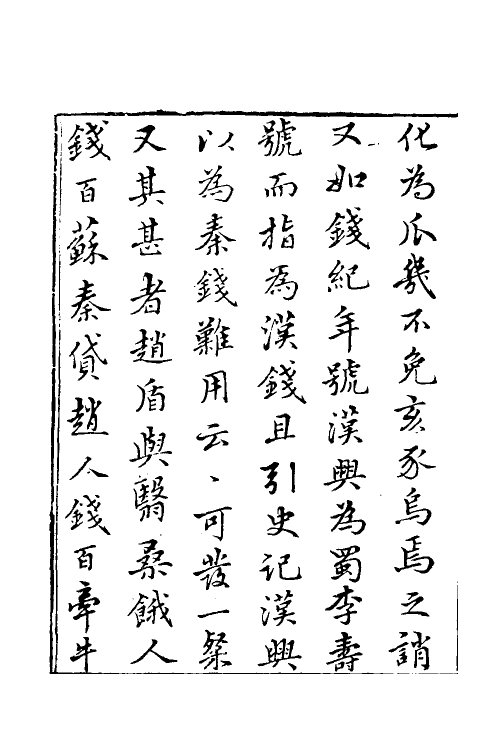 化為瓜幾不免亥豕烏焉之誚
又如錢紀年號漢興為蜀李壽
號而指為漢錢且引史記漢興
以為秦錢難用云〻可發一粲
又其甚者趙盾與翳桑餓人
錢百蘇秦貸趙人錢百牽牛